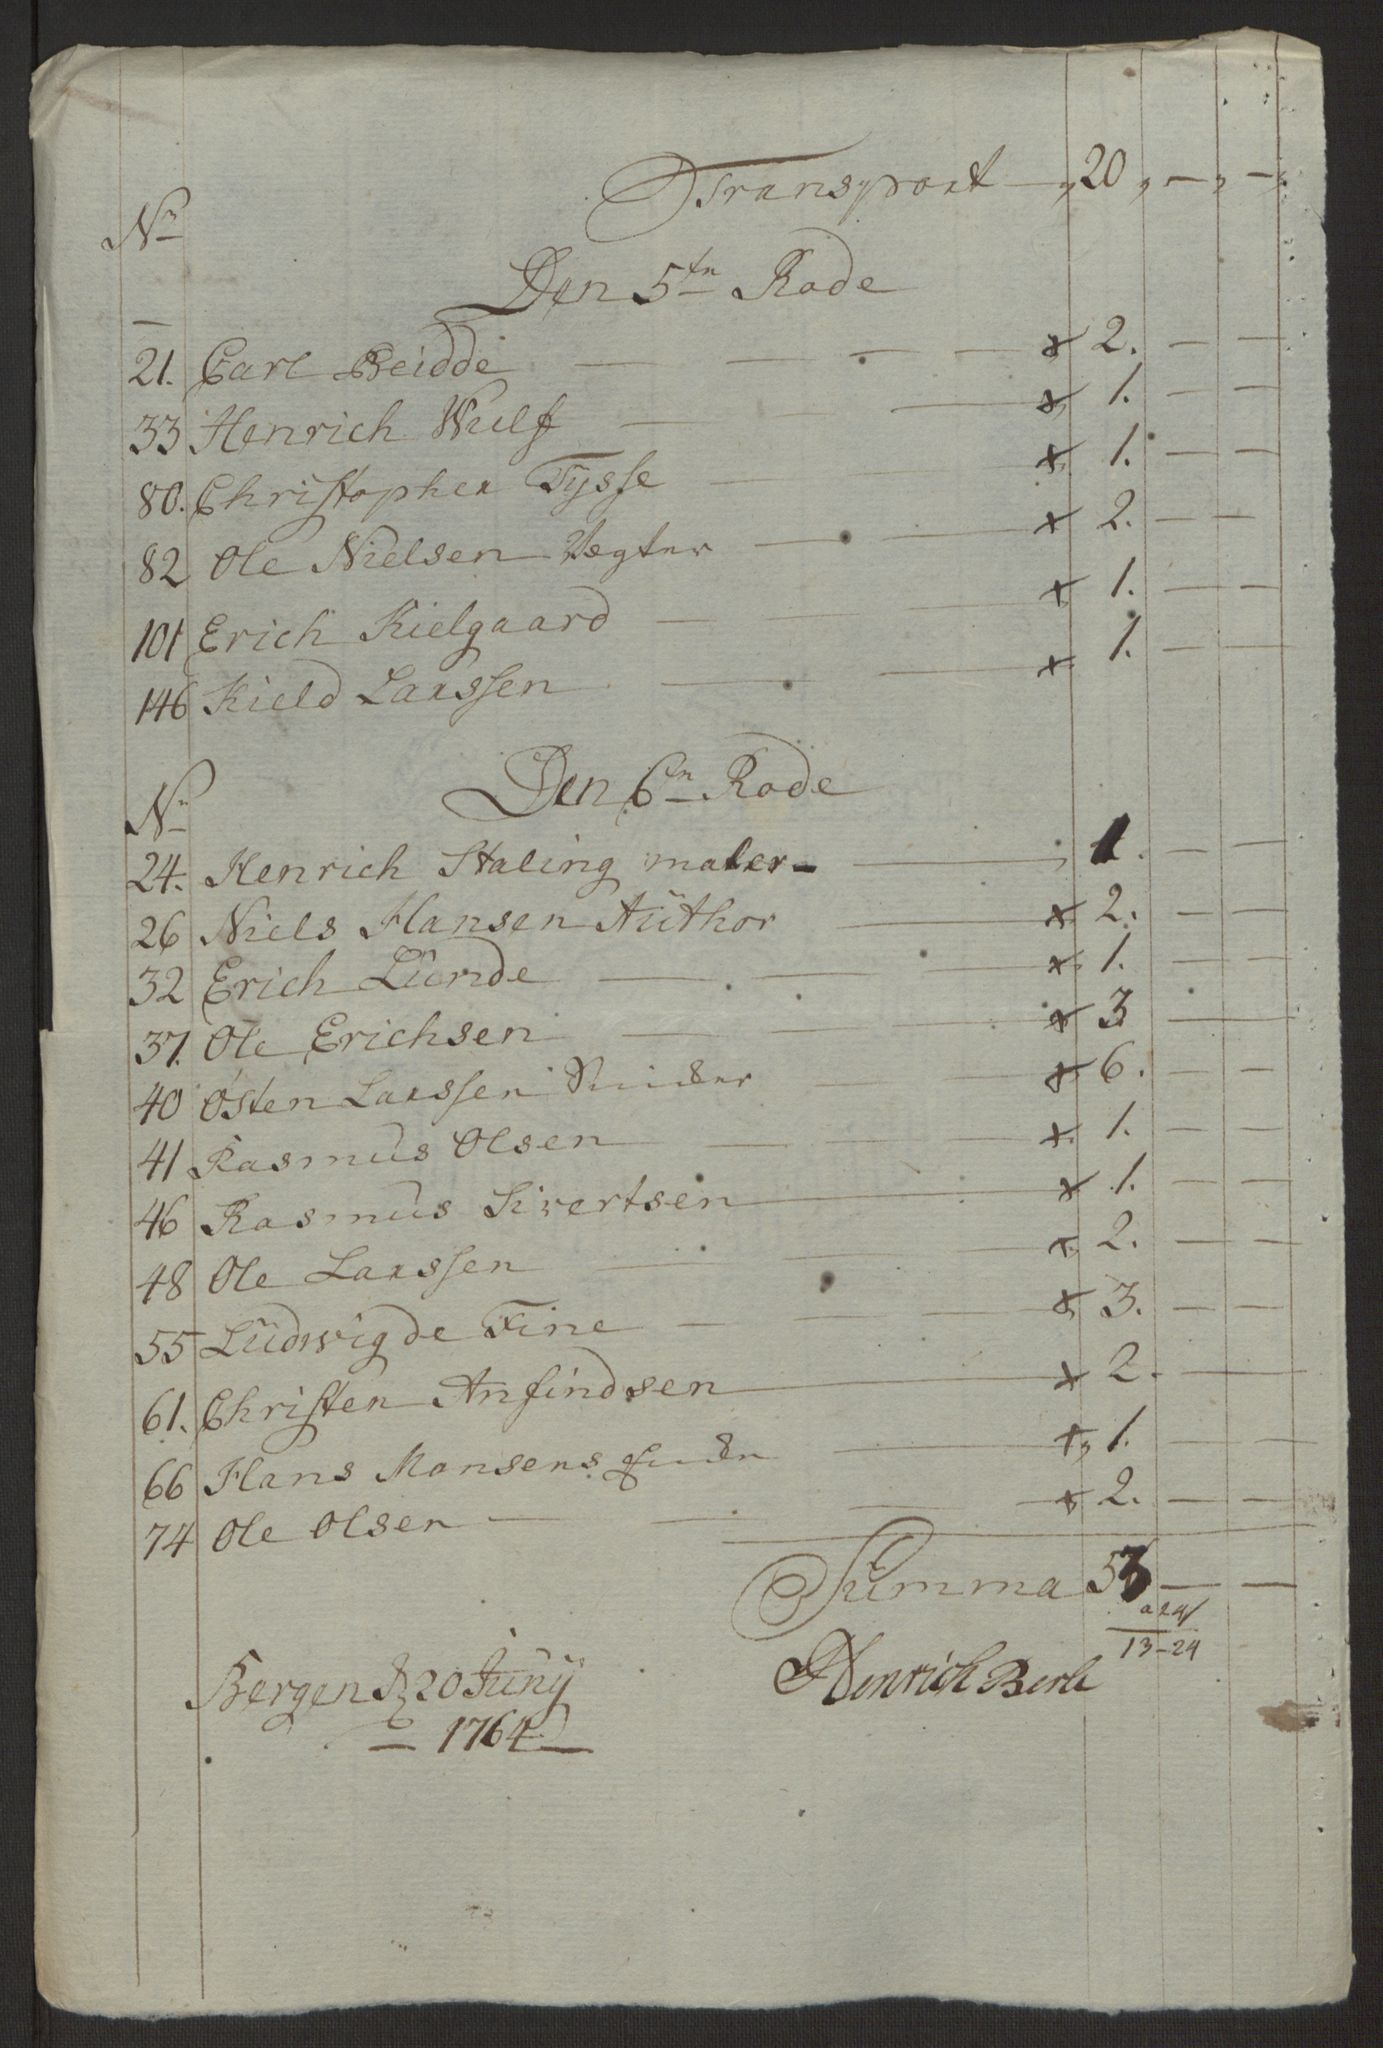 Transport , 20 , — , —
Nr
Den 5te Rode
21. Carl Beidde — — — x 2. — —
33 Henrich Wulf — — — x 1. — —
80. Christopher Tysse — — — x 1. — —
82 Ole Nielsen Vægter — — — x 2. — —
101 Erich Kielgaard — — — x 1. — —
146 Kield Larssen — — — x 1. — —
Den 6te Rode
Nr
24. Henrich Staling maler — — 1. — —
26 Niels Hansen Author — x 2. — —
32 Erich Lünde — — — x 1. — —
37. Ole Erichsen — — — x 3 — —
40 Østen Larssen — — x 6. — —
41 Rasmus Olsen — — — x 1. — —
46 Rasmus Sivertsen — x 1. — —
48 Ole Larssen — — x 2. — —
55 Lüdwig de Fine — — — x 3. — —
61. Christen Anfindsen — x 2. — —
66 Hans Monsens — x 1. — —
74 Ole Olsen — — — x 2. — —
Summa 53 — —
a 24
13-24
Bergen d 20 Junÿ
1764
Henrich Berli